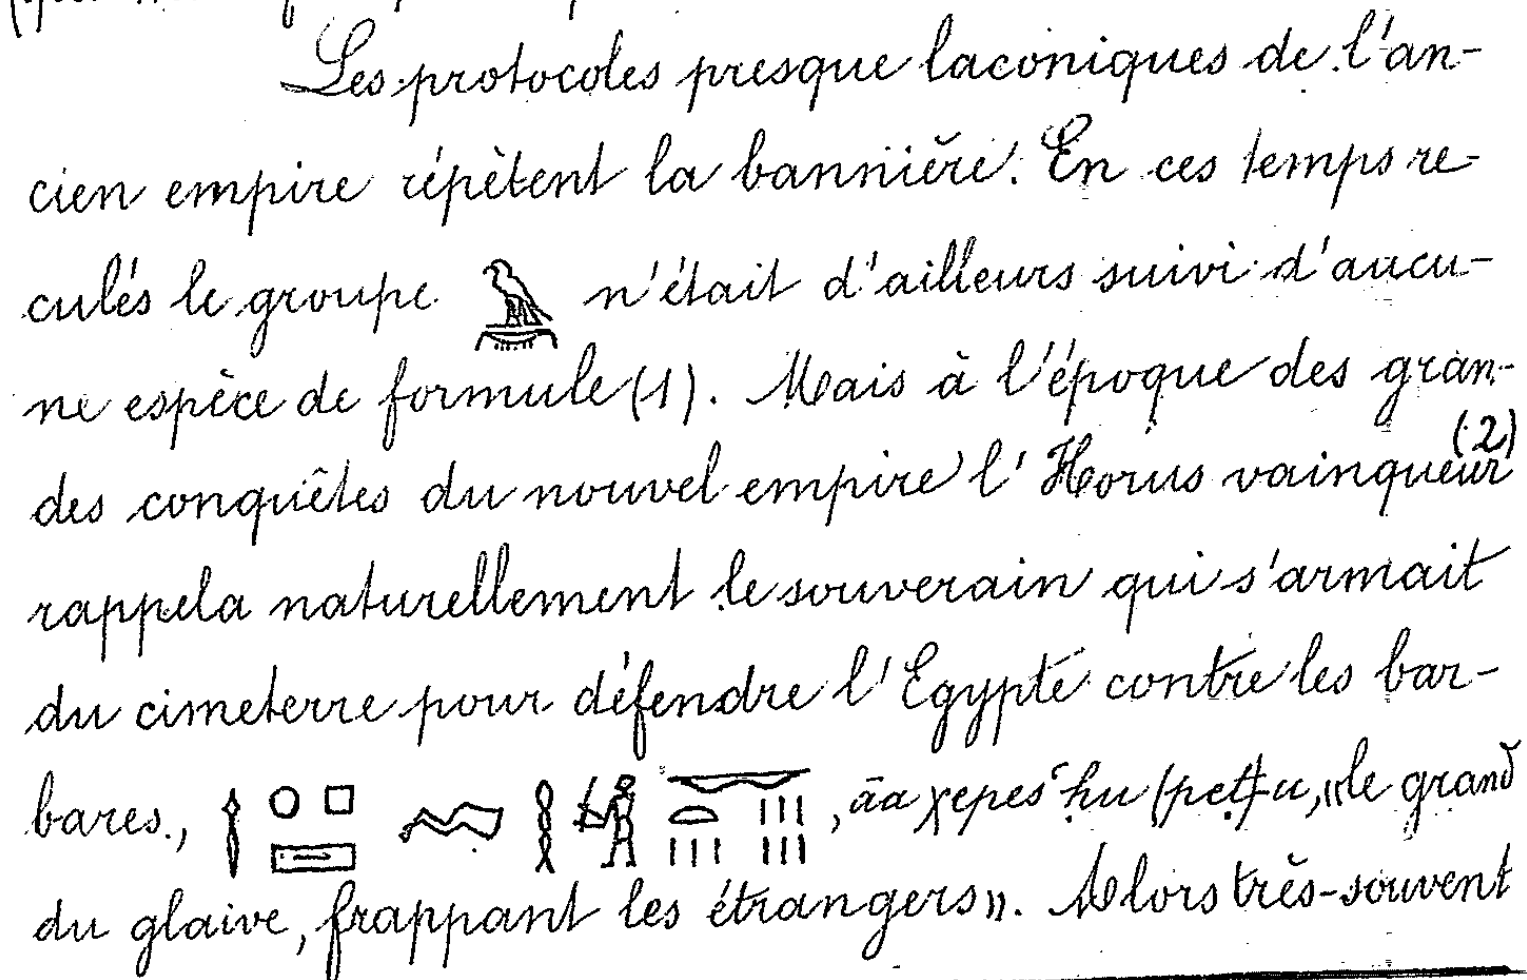 Les protocoles presque laconiques de l'an-
cien empire répètent la bannière. En ces temps re-
culés le groupe 𓅉 n'était d'ailleurs suivi d'aucu-
ne espèce de formule (1). Mais à l'époque des gran-
des conquêtes du nouvel empire l'Horus vainqueur (2)
rappela naturellement le souverain qui s'armait
du cimeterre pour défendre l'Egypte contre les bar-
bares, , āa χepeš hu (pet)u, «le grand
du glaive, frappant les étrangers». Alors très-souvent